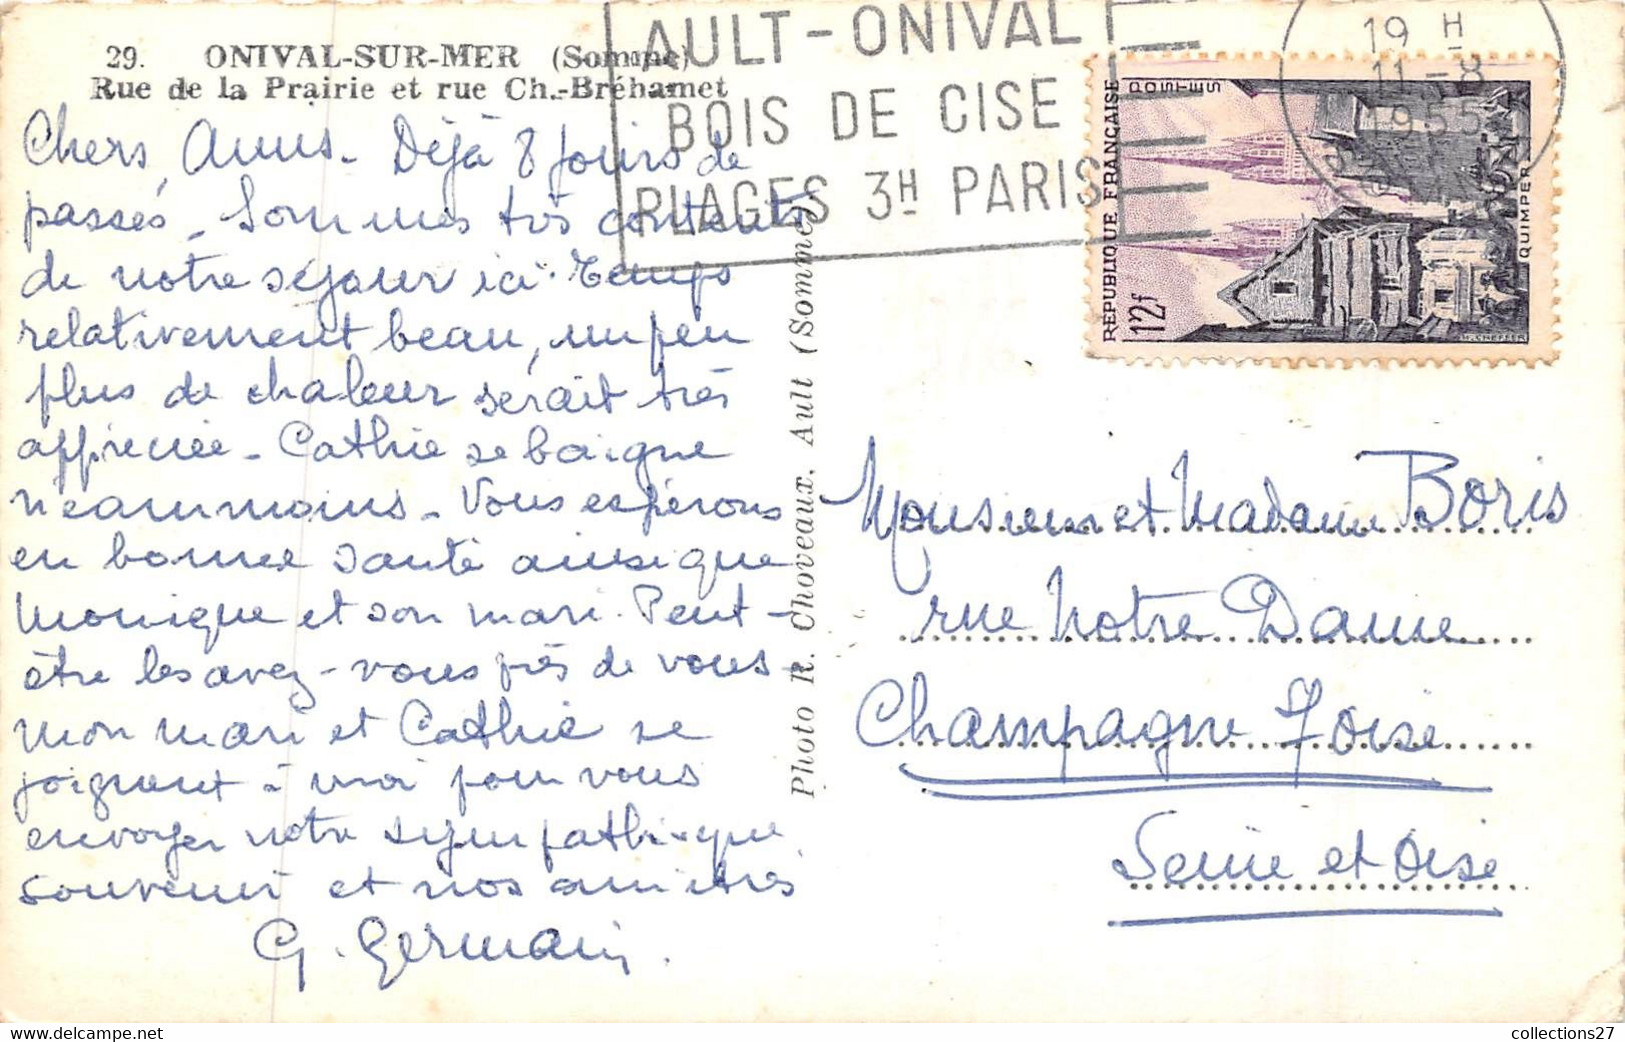 29. ONIVAL-SUR-MER (Somme)
Rue de la Prairie et rue Ch.-Bréhamet
Chers Amis - Déjà 8 jours de
passés - Sommes très contents
de notre séjour ici. Temps
relativement beau, un peu
plus de chaleur serait très
appréciée - Cathie se baigne
néanmoins - Vous espérons
en bonne santé ainsi que
Monique et son mari. Peut-
être les avez-vous près de vous -
Mon mari et Cathie se
joignent à moi pour vous
envoyer notre sympathique
souvenir et nos amitiés
G. Germain.
Photo R. Choveaux, Ault (Somme)
AULT-ONIVAL
BOIS DE CISE
PLAGES 3H PARIS
19 H
11-8
1955
REPUBLIQUE FRANÇAISE
POSTES
12f
QUIMPER
H. CHEFFER
Monsieur et Madame Boris
rue Notre Dame
Champagne s/Oise
Seine et Oise
collections27